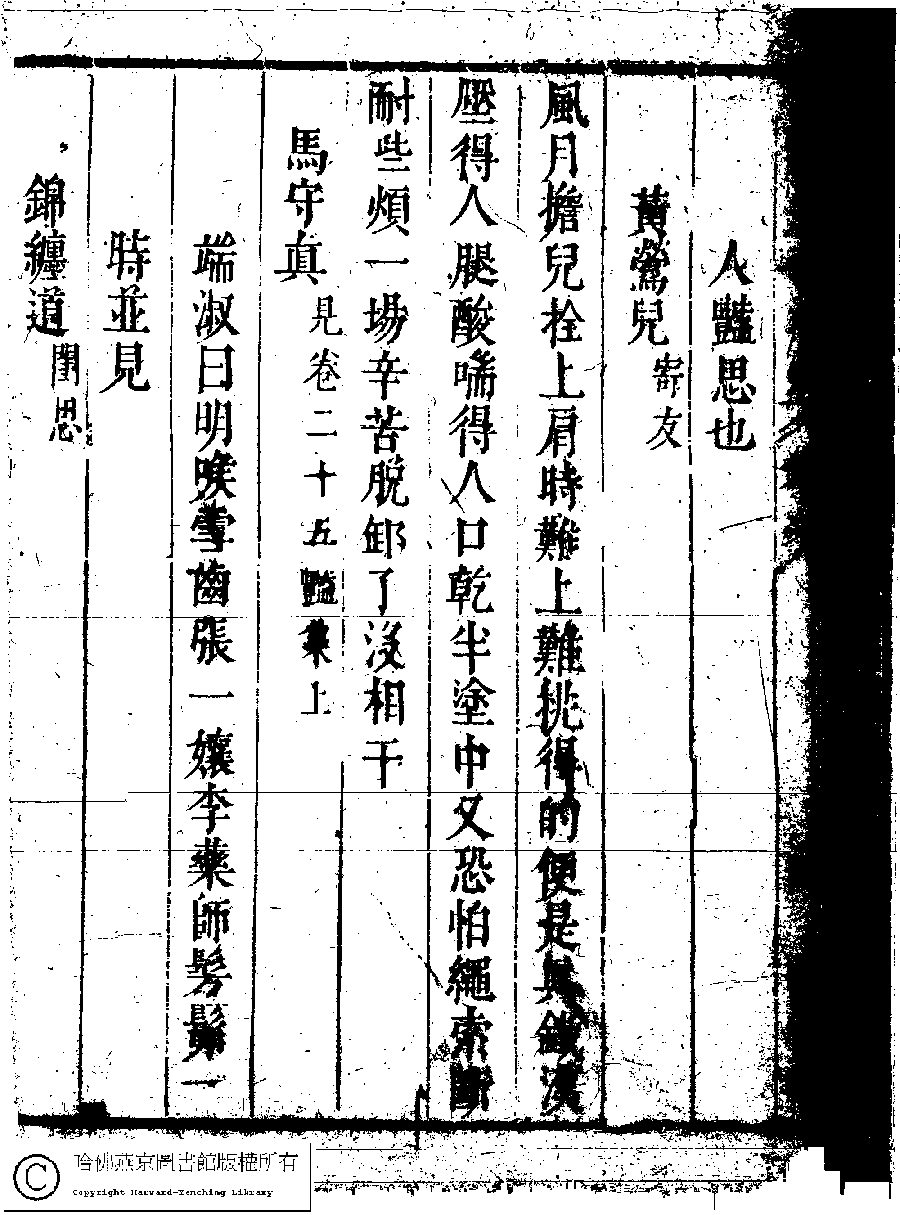 人豔思也
黃鶯兒 寄友
風月擔兒拴上肩時難上難挑得的便是真鐵漢
壓得人腿酸喘得人口乾半塗中又恐怕繩索斷
耐些煩一場辛苦脫卸了沒相干
馬守真 見卷二十五豔集上
端淑曰明喉雪齒張一孃李藥師髣髴一
時並見
錦纏道 閨思
哈佛燕京圖書館版權所有
Copyright Harvard-Yenching Library